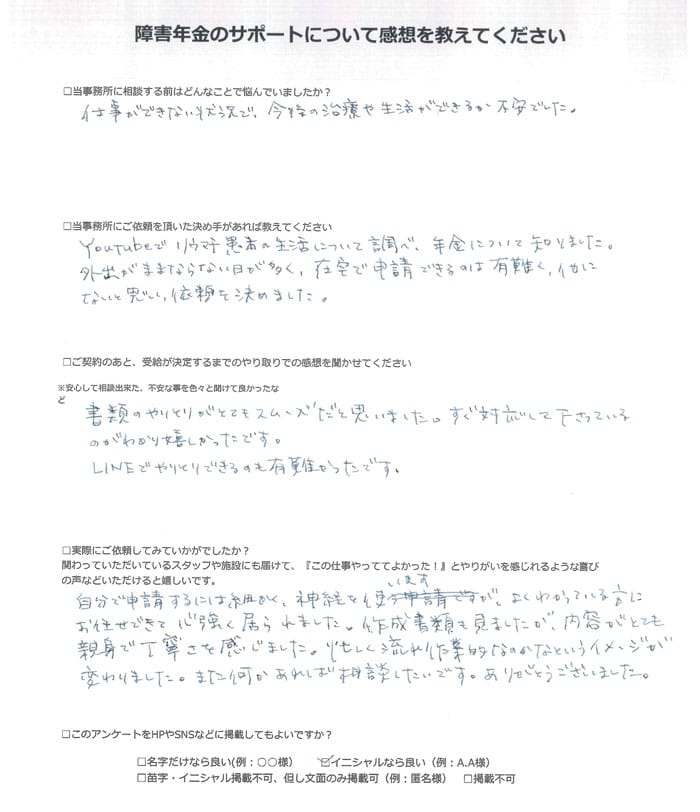 障害年金のサポートについて感想を教えてください
□当事務所に相談する前はどんなことで悩んでいましたか？
仕事ができない状況で、今後の治療や生活ができるか不安でした。
□当事務所にご依頼を頂いた決め手があれば教えてください
Youtubeでリウマチ患者の生活について調べ、年金について知りました。
外出がままならない日が多く、在宅で申請できるのは有難く、他に
ないと思い、依頼を決めました。
□ご契約のあと、受給が決定するまでのやり取りでの感想を聞かせてください
※安心して相談出来た、不安な事を色々と聞けて良かったな
ど
書類のやりとりがとてもスムーズだと思いました。すぐ対応して下さっている
のがわかり嬉しかったです。
LINEでやりとりできるのも有難かったです。
□実際にご依頼してみていかがでしたか？
関わっていただいているスタッフや施設にも届けて、『この仕事やっててよかった！』とやりがいを感じれるような喜び
の声などいただけると嬉しいです。
います
自分で申請するには細かく、神経を使う申請ですが、よくわかっている方に
お任せできて心強く居られました。作成書類も見ましたが、内容がとても
親身で丁寧さを感じました。忙しく流れ作業的なのかなというイメージが
変わりました。また何かあれば相談したいです。ありがとうございました。
□このアンケートをHPやSNSなどに掲載してもよいですか？
□名字だけなら良い(例：〇〇様) ☑イニシャルなら良い（例：A.A様）
□苗字・イニシャル掲載不可、但し文面のみ掲載可（例：匿名様） □掲載不可